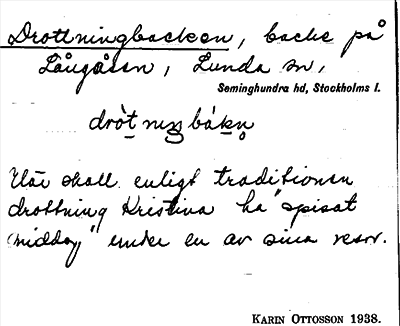 Drottningbacken, backe på
Långåsen, Lunda sn,
Seminghundra hd, Stockholms l.
dròt niŋ bákn̥
Här skall enligt traditionen
drottning Kristina ha "spisat
middag" under en av sina resor.
KARIN OTTOSSON 1938.